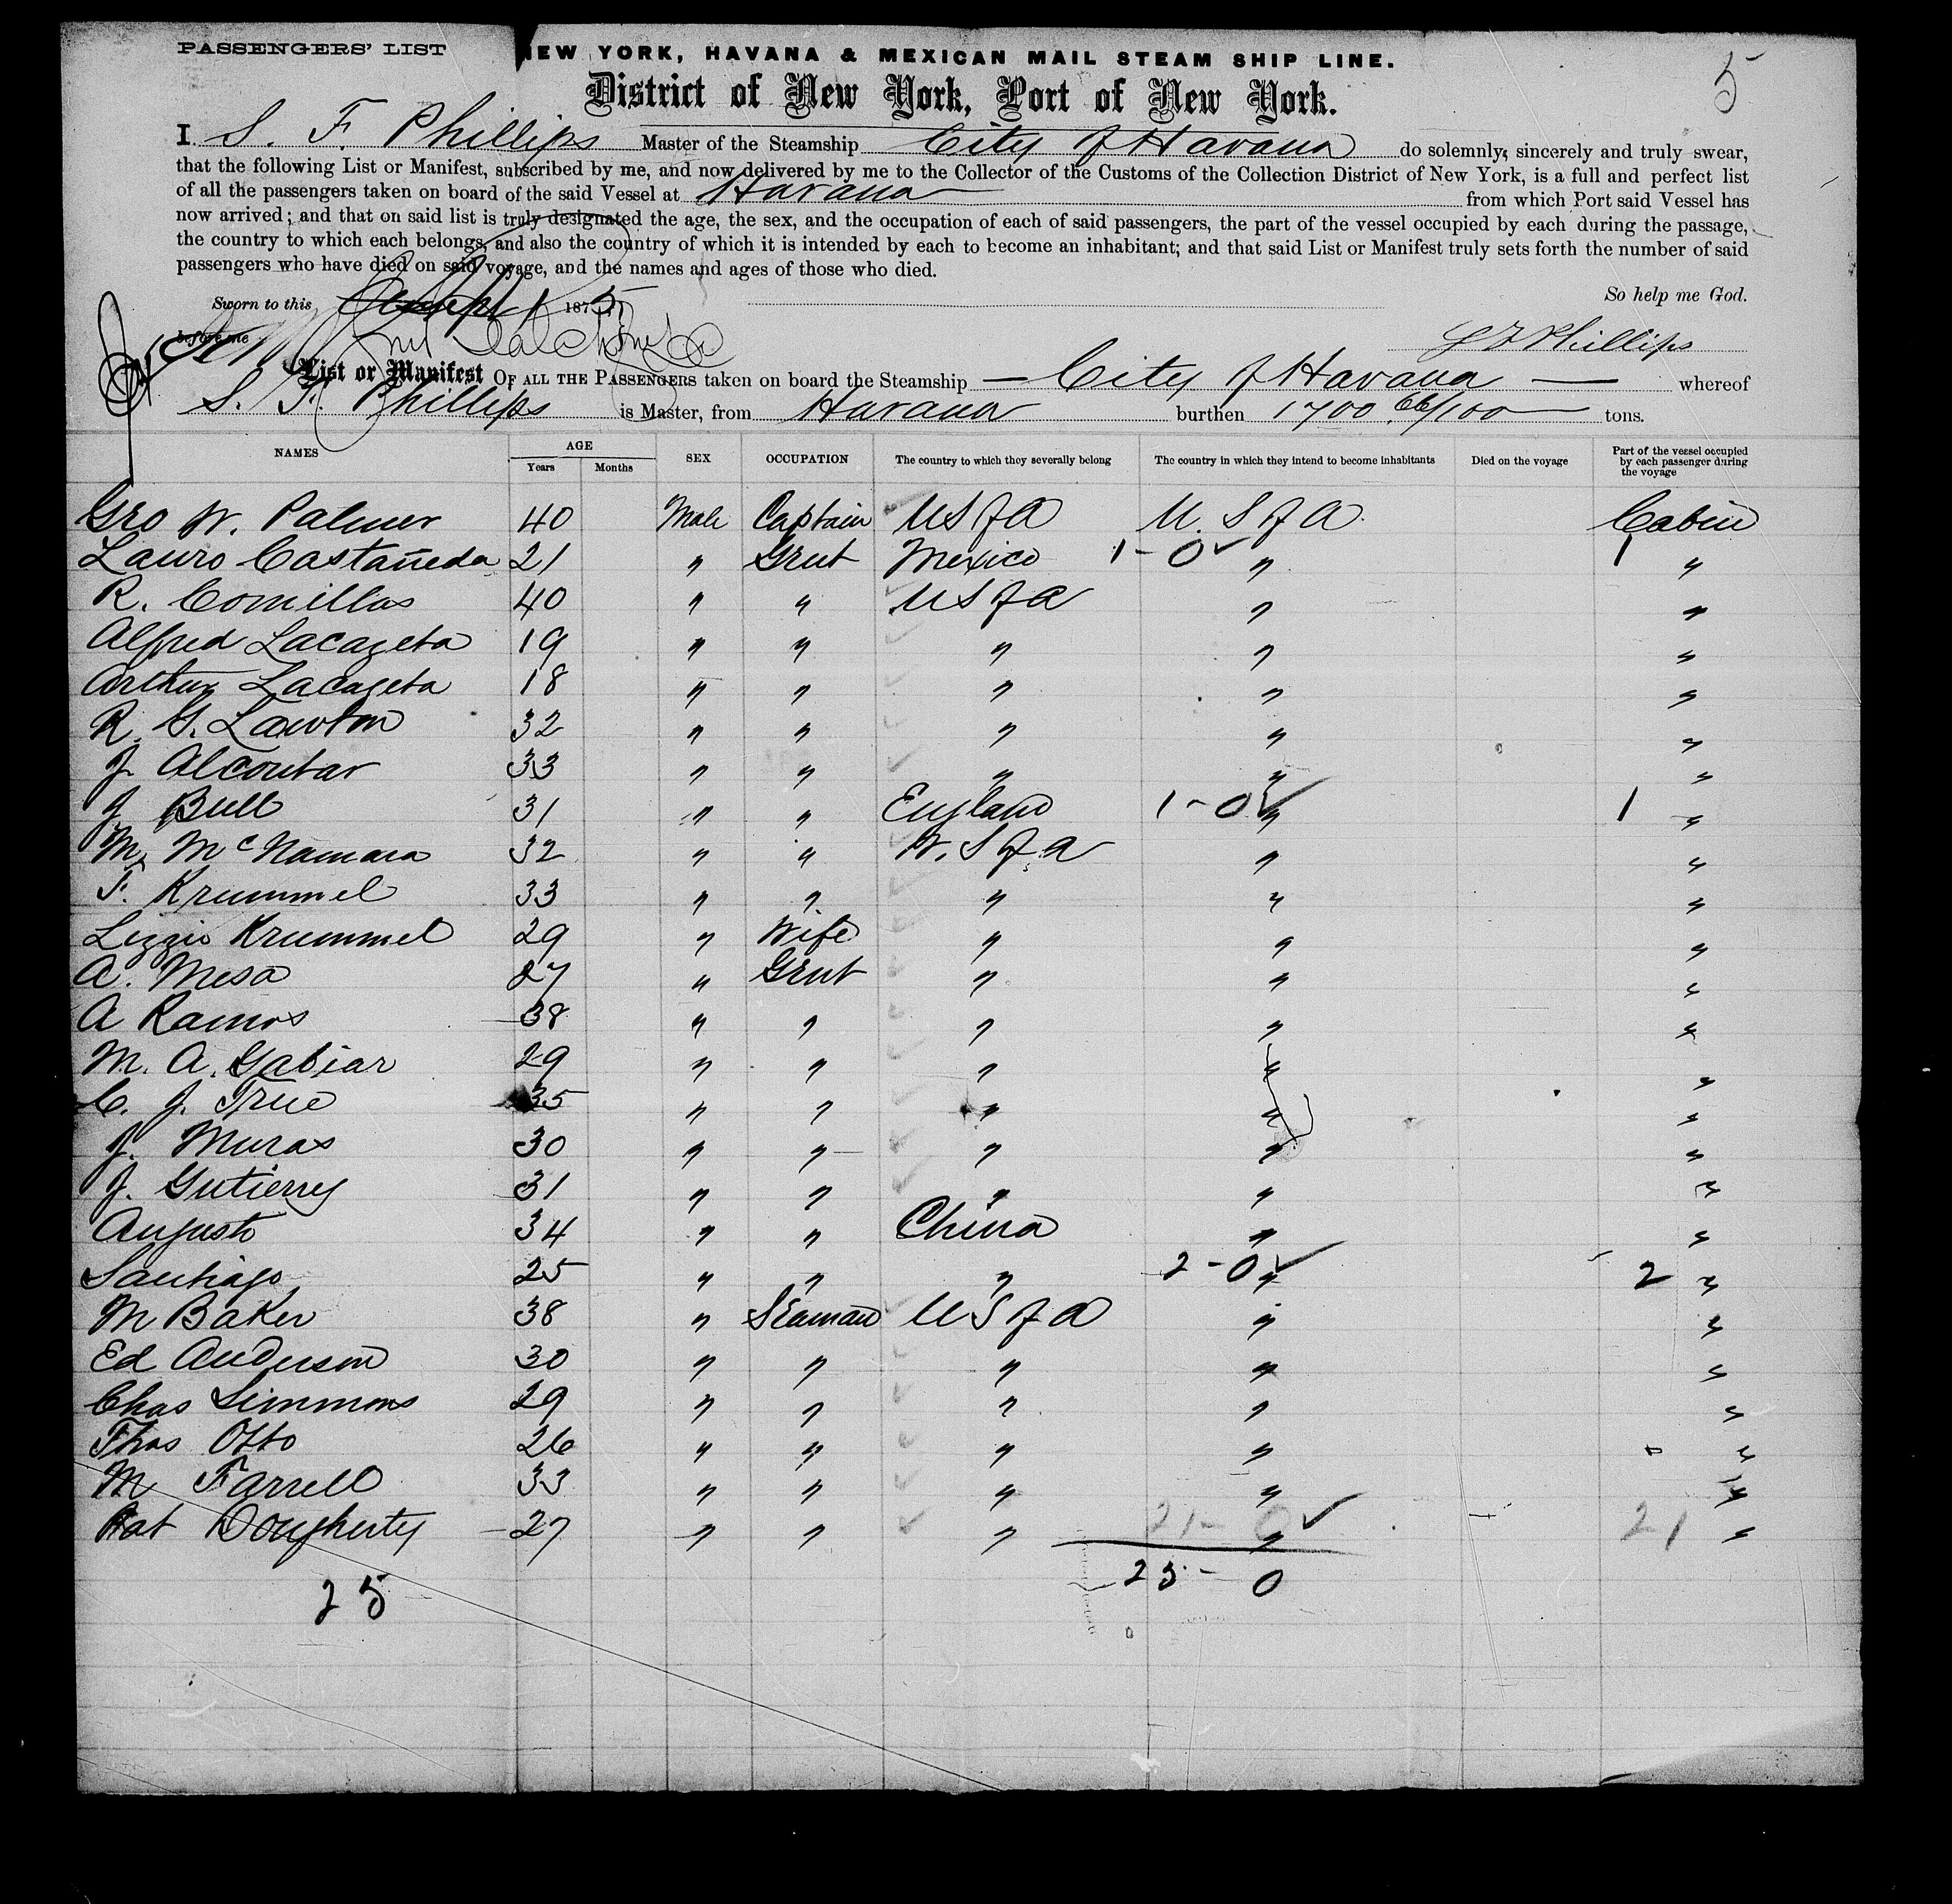 PASSENGERS' LIST
NEW YORK, HAVANA & MEXICAN MAIL STEAM SHIP LINE.
5
District of New York, Port of New York.
I S. F. Phillips Master of the Steamship City of Havana do solemnly, sincerely and truly swear,
that the following List or Manifest, subscribed by me, and now delivered by me to the Collector of the Customs of the Collection District of New York, is a full and perfect list
of all the passengers taken on board of the said Vessel at Havana from which Port said Vessel has
now arrived; and that on said list is truly designated the age, the sex, and the occupation of each of said passengers, the part of the vessel occupied by each during the passage,
the country to which each belongs, and also the country of which it is intended by each to become an inhabitant; and that said List or Manifest truly sets forth the number of said
passengers who have died on said voyage, and the names and ages of those who died.
So help me God.
Sworn to this 1875
before me
S F Phillips
List or Manifest OF ALL THE PASSENGERS taken on board the Steamship City of Havana whereof
S. F. Phillips is Master, from Havana burthen 1700 66/100 tons.
NAMES AGE Years Months SEX OCCUPATION The country to which they severally belong The country in which they intend to become inhabitants Died on the voyage Part of the vessel occupied by each passenger during the voyage
Geo W. Palmer 40 Male Captain US of A U. S of A. Cabin
Lauro Castañeda 21 " Gent Mexico 1-0 " 1 "
R. Comillas 40 " " US of A " "
Alfred Lacazeta 19 " " " " "
Arthur Lacazeta 18 " " " " "
R. G. Lawton 32 " " " " "
J Alcoutar 33 " " " " "
J Bull 31 " " England 1-0 " 1 "
M. McNamara 32 " " U. S of A " "
F. Krummel 33 " " " " "
Lizzie Krummel 29 " Wife " " "
A. Mesa 27 " Gent " " "
A Ramos 38 " " " " "
M. A. Gabiar 29 " " " " "
C. J. True 35 " " " " "
J. Muras 30 " " " " "
J. Gutierry 31 " " " " "
Augusto 34 " " China " "
Santiago 25 " " " 2-0 " 2 "
M Baker 38 " Seaman US of A " "
Ed Anderson 30 " " " " "
Chas Simmons 29 " " " " "
Thos Otto 26 " " " " "
M Farrell 33 " " " " "
Pat Dougherty 27 " " " 21-0 " 21 "
25 25-0